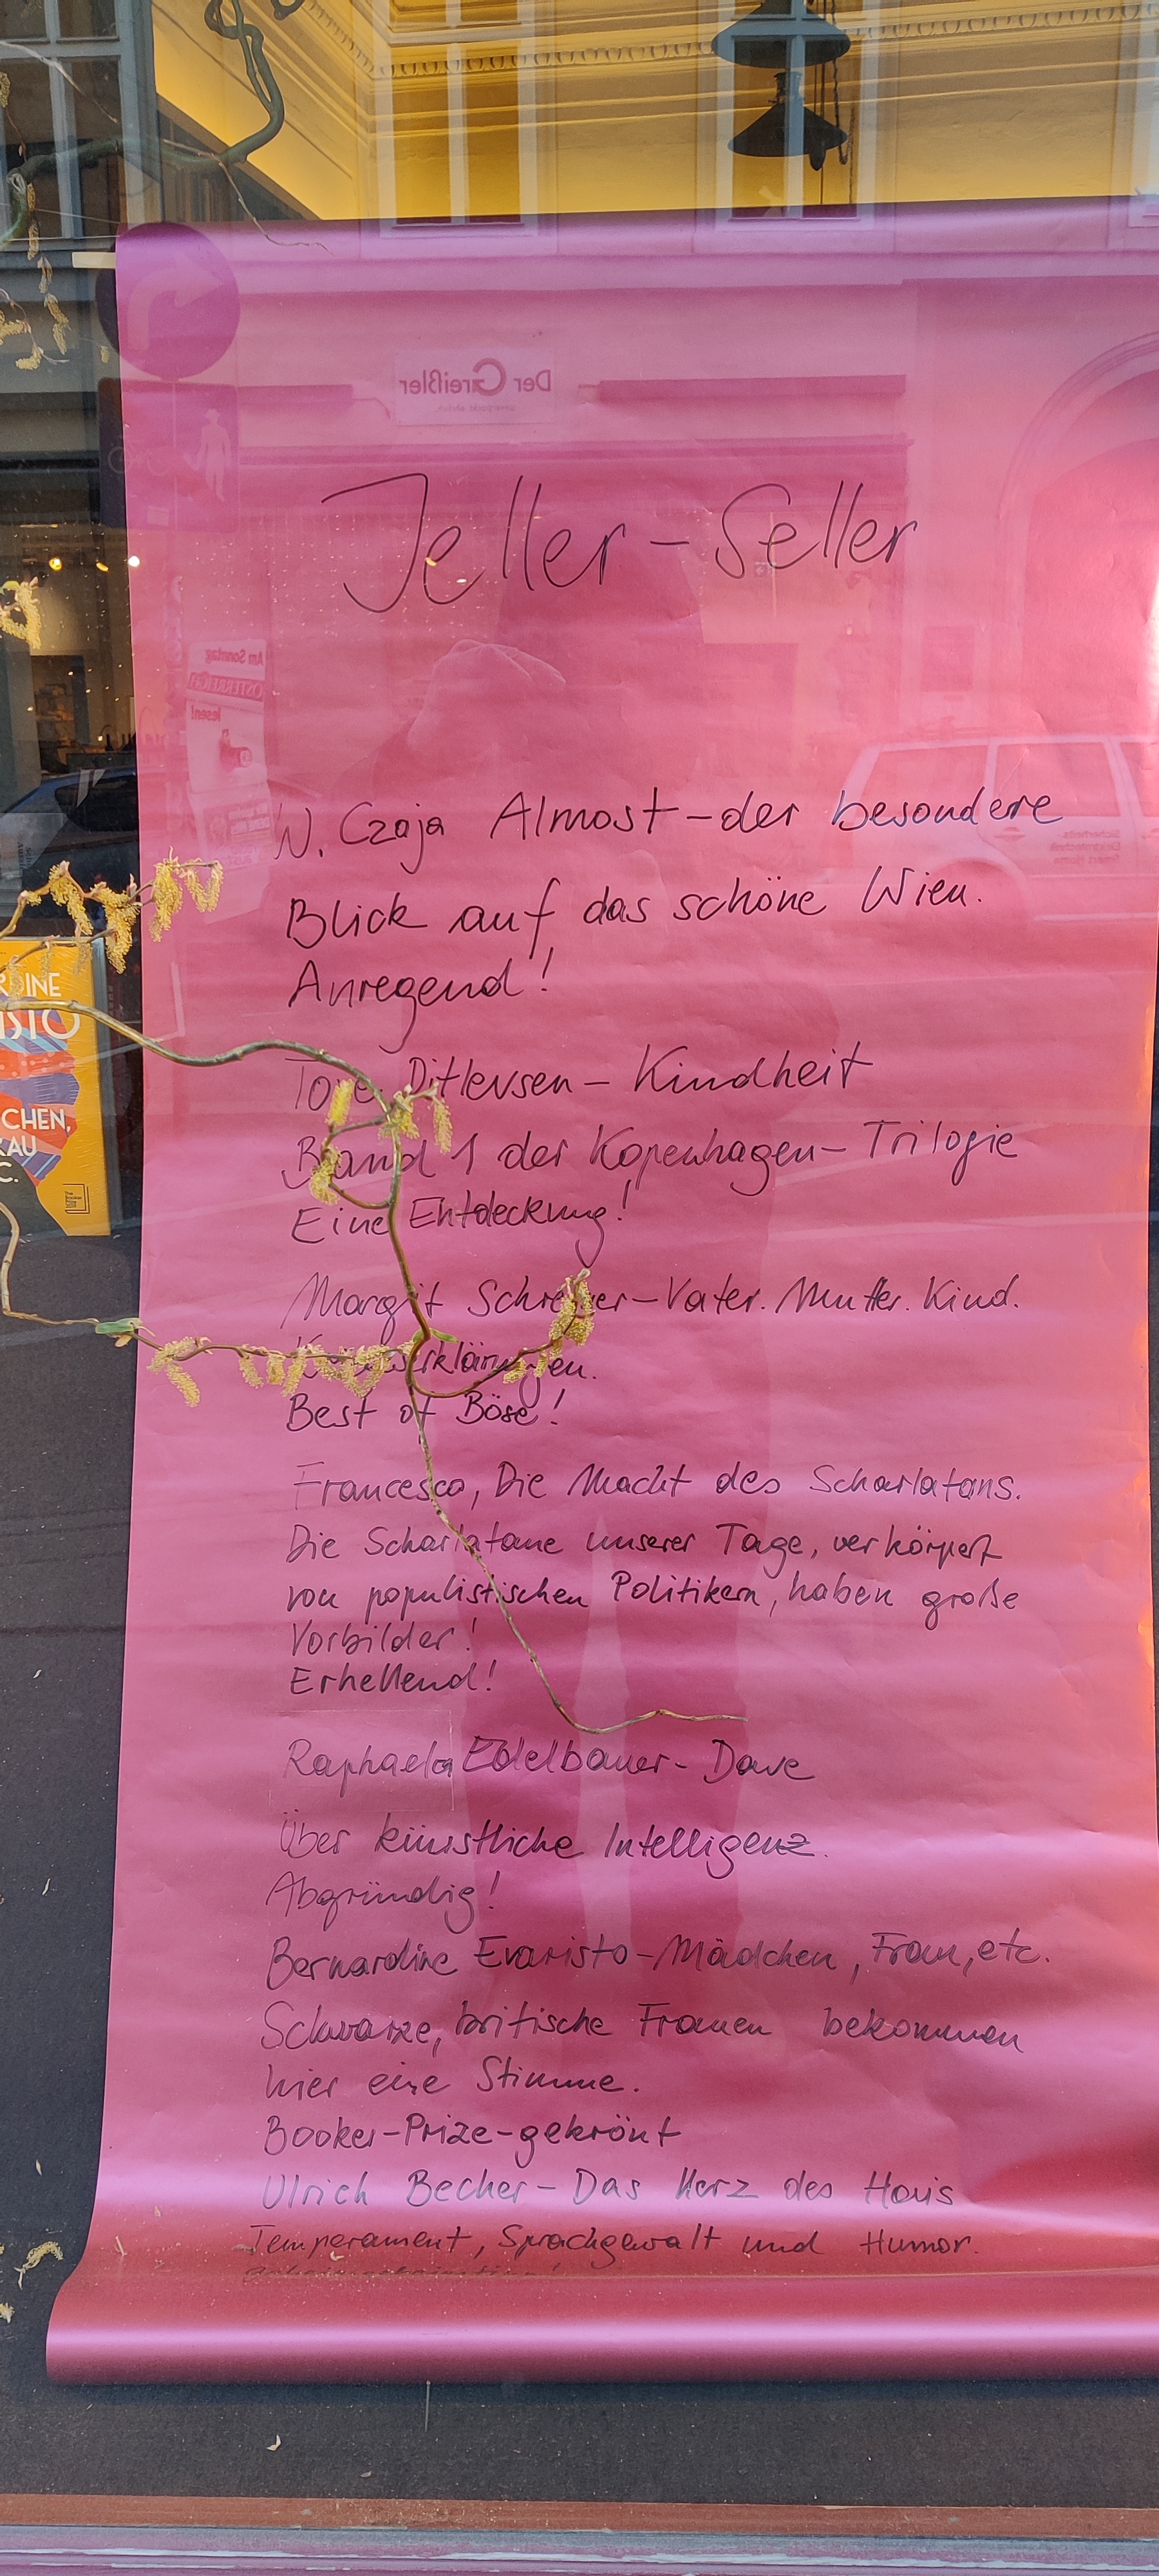 Der Greißler
unverpackt ehrlich
Jeller-Seller
Am Sonntag
ÖSTERREICH
lesen!
W. Czaja Almost - der besondere
Blick auf das schöne Wien.
Anregend!
Tove Ditlevsen - Kindheit
Band 1 der Kopenhagen-Trilogie
Eine Entdeckung!
Margit Schreiner - Vater. Mutter. Kind.
Best of Böse!
Francesco, Die Macht des Scharlatans.
Die Scharlatane unserer Tage, verkörpert
von populistischen Politikern, haben große
Vorbilder!
Erhellend!
Raphaela Edelbauer - Dave
Über künstliche Intelligenz.
Abgründig!
Bernardine Evaristo - Mädchen, Frau, etc.
Schwarze, britische Frauen bekommen
hier eine Stimme.
Booker-Prize-gekrönt
Ulrich Becher - Das Herz des Hais
Temperament, Sprachgewalt und Humor.
RDINE
ISTO
CHEN,
RAU
C.
Sicherheits-
Elektrotechnik
Smart Home